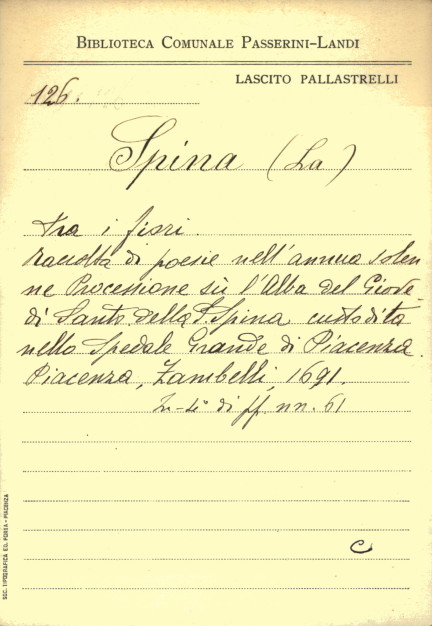 BIBLIOTECA COMUNALE PASSERINI-LANDI
LASCITO PALLASTRELLI
126.
Spina (La)
tra i fiori.
Raccolta di poesie nell'annua solen
ne Processione sù l'Alba del Giove-
di Santo della S. Spina custodita
nello Spedale Grande di Piacenza.
Piacenza, Zambelli, 1691.
In-4° di ff. nn. 61
C
SOC. TIPOGRAFICA ED. PORTA - PIACENZA